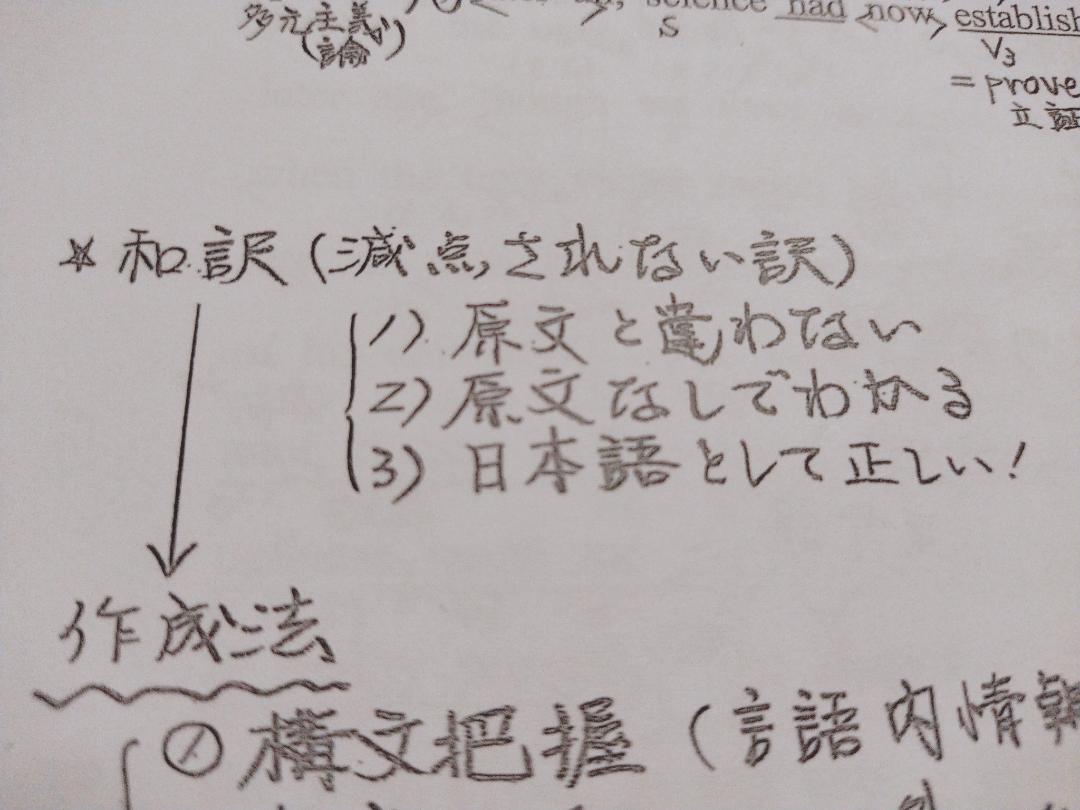 science had now establish
多元主義
(論)
S
V3
= prove
立証
☆ 和訳 (減点されない訳)
1) 原文と違わない
2) 原文なしでわかる
3) 日本語として正しい!
作成法
① 構文把握 (言語内情報